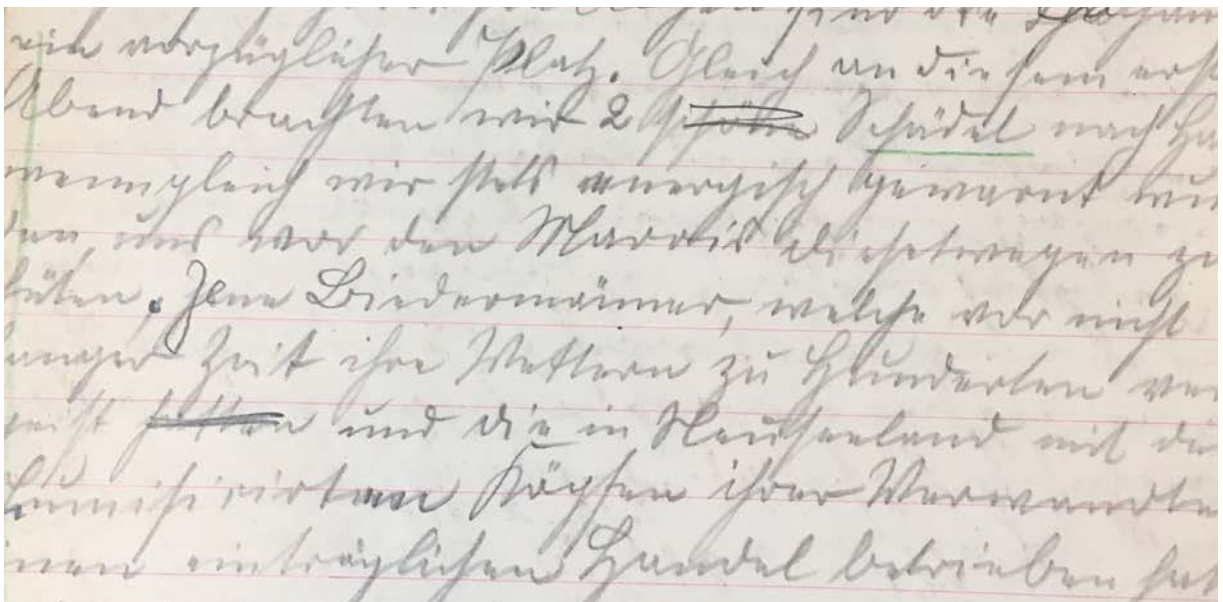 sind die
ein vorzüglicher Platz. Gleich an diesem erst
Abend brachten wir 2 Schädel nach Ha
wenngleich wir stets energisch gewarnt wur
den, uns vor den Maoris diesetwegen zu
hüten. Jene Biedermänner, welche vor nicht
langer Zeit ihre Vettern zu Hunderten ver
speist hatten und die in Neuseeland mit den
mumificirten Köpfen ihrer Verwandte
inen einträglichen Handel betrieben hat